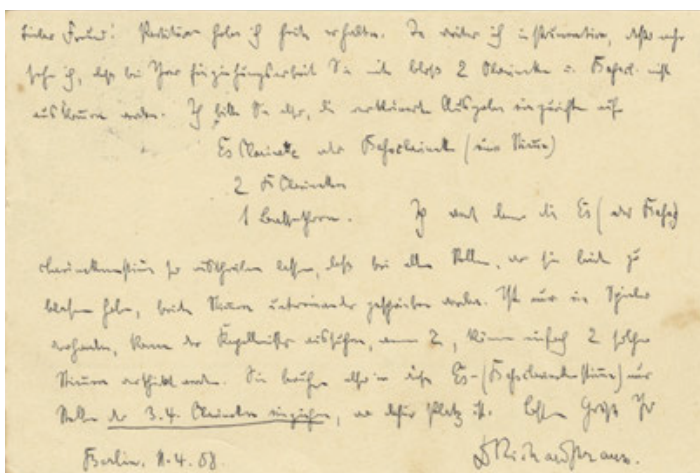 Lieber Freund! Partitur habe ich heute erhalten. Je weiter ich instrumentire, desto mehr
sehe ich, daß bei Ihrer Einziehungsarbeit Sie mit bloß 2 Clarinetten u. Baßcl. nicht
auskommen werden. Ich bitte Sie also, die verkleinerte Ausgabe einzurichten auf
Es Clarinette oder Baßclarinette (eine Stimme)
2 B Clarinetten
1 Bassethorn. Ich werde dann die Es (oder Baß)
clarinettenstimme so ausschreiben lassen, daß bei allen Stellen, wo sie beide zu
blasen haben, beide Stimmen untereinander geschrieben werden. Ist nur ein Spieler
vorhanden, kann der Kapellmeister aussuchen, wenn 2, können einfach 2 solcher
Stimmen vertheilt werden. Sie brauchen also in diese Es-(Baßclarinettenstimme) nur
Stellen der 3. 4. Clarinetten einziehen, wo dafür Platz ist. Besten Gruß Ihr
Berlin, 8.4.08. DRichard Strauss.